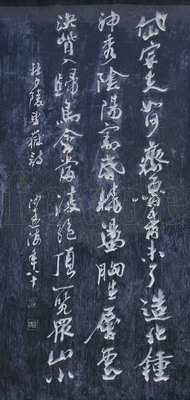 岱宗夫如何齊魯青未了造化鍾
神秀陰陽割昏曉盪胸生層雲
決眥入歸鳥會當凌絕頂一覽眾山小
杜少陵望嶽詩 沙孟海